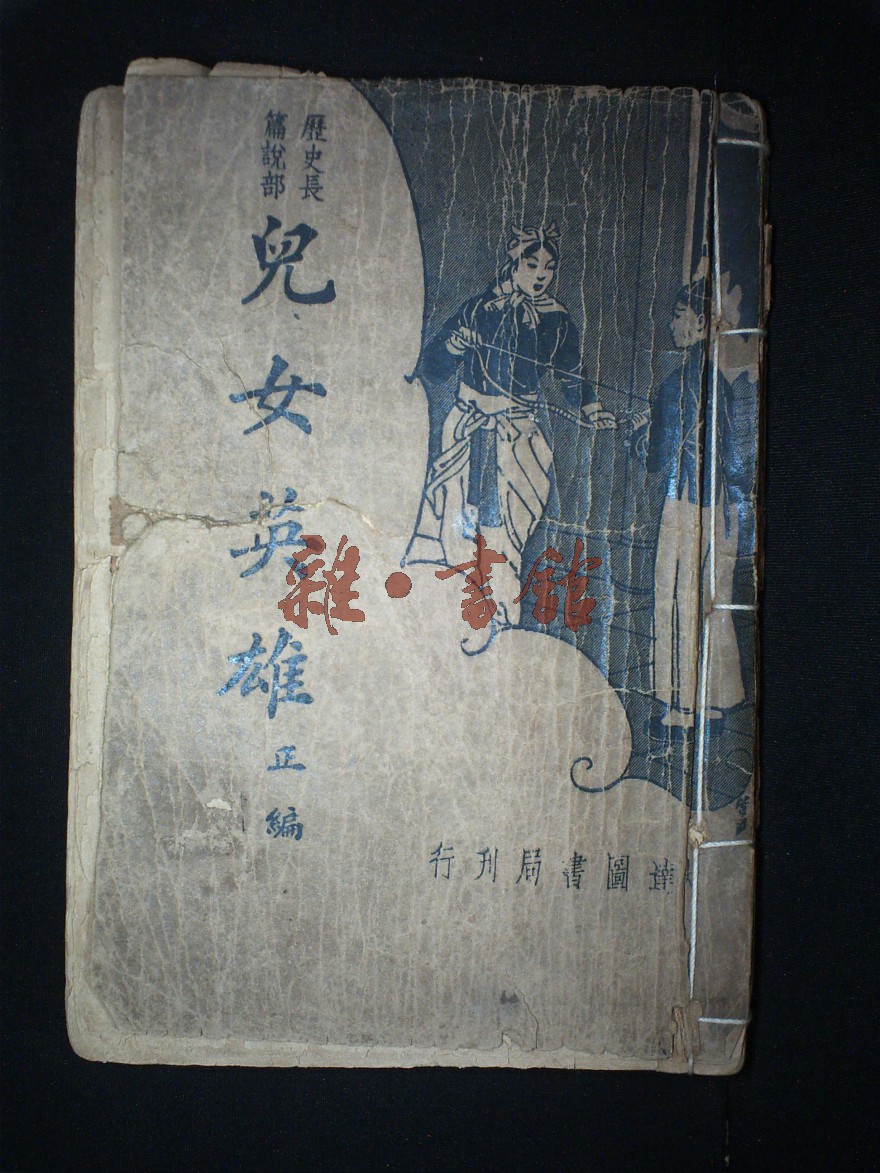 歷史長
篇說部
兒女英雄
正編
達圖書局刊行
雜·書館